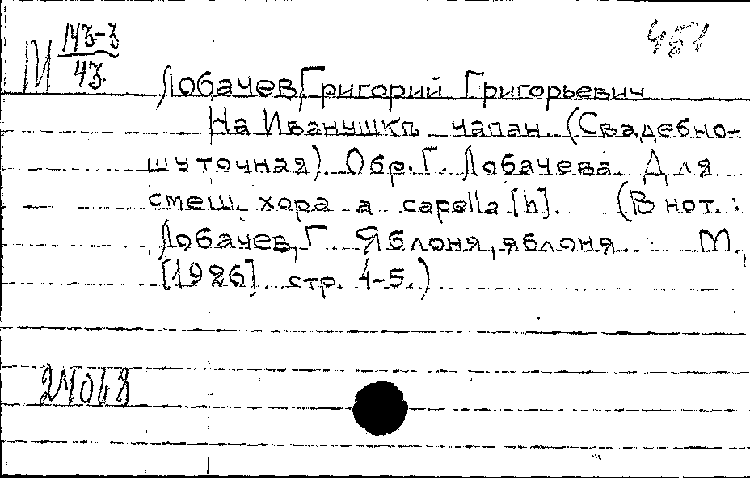 М 143-3/43.
451
Лобачев, Григорий Григорьевич
На Иванушкѣ чапан. (Свадебно-
шуточная). Обр. Г. Лобачева. Для
смеш. хора a capella [h]. (В нот.:
Лобачев, Г. Яблоня, яблоня. М.,
[1926]. стр. 4-5.)